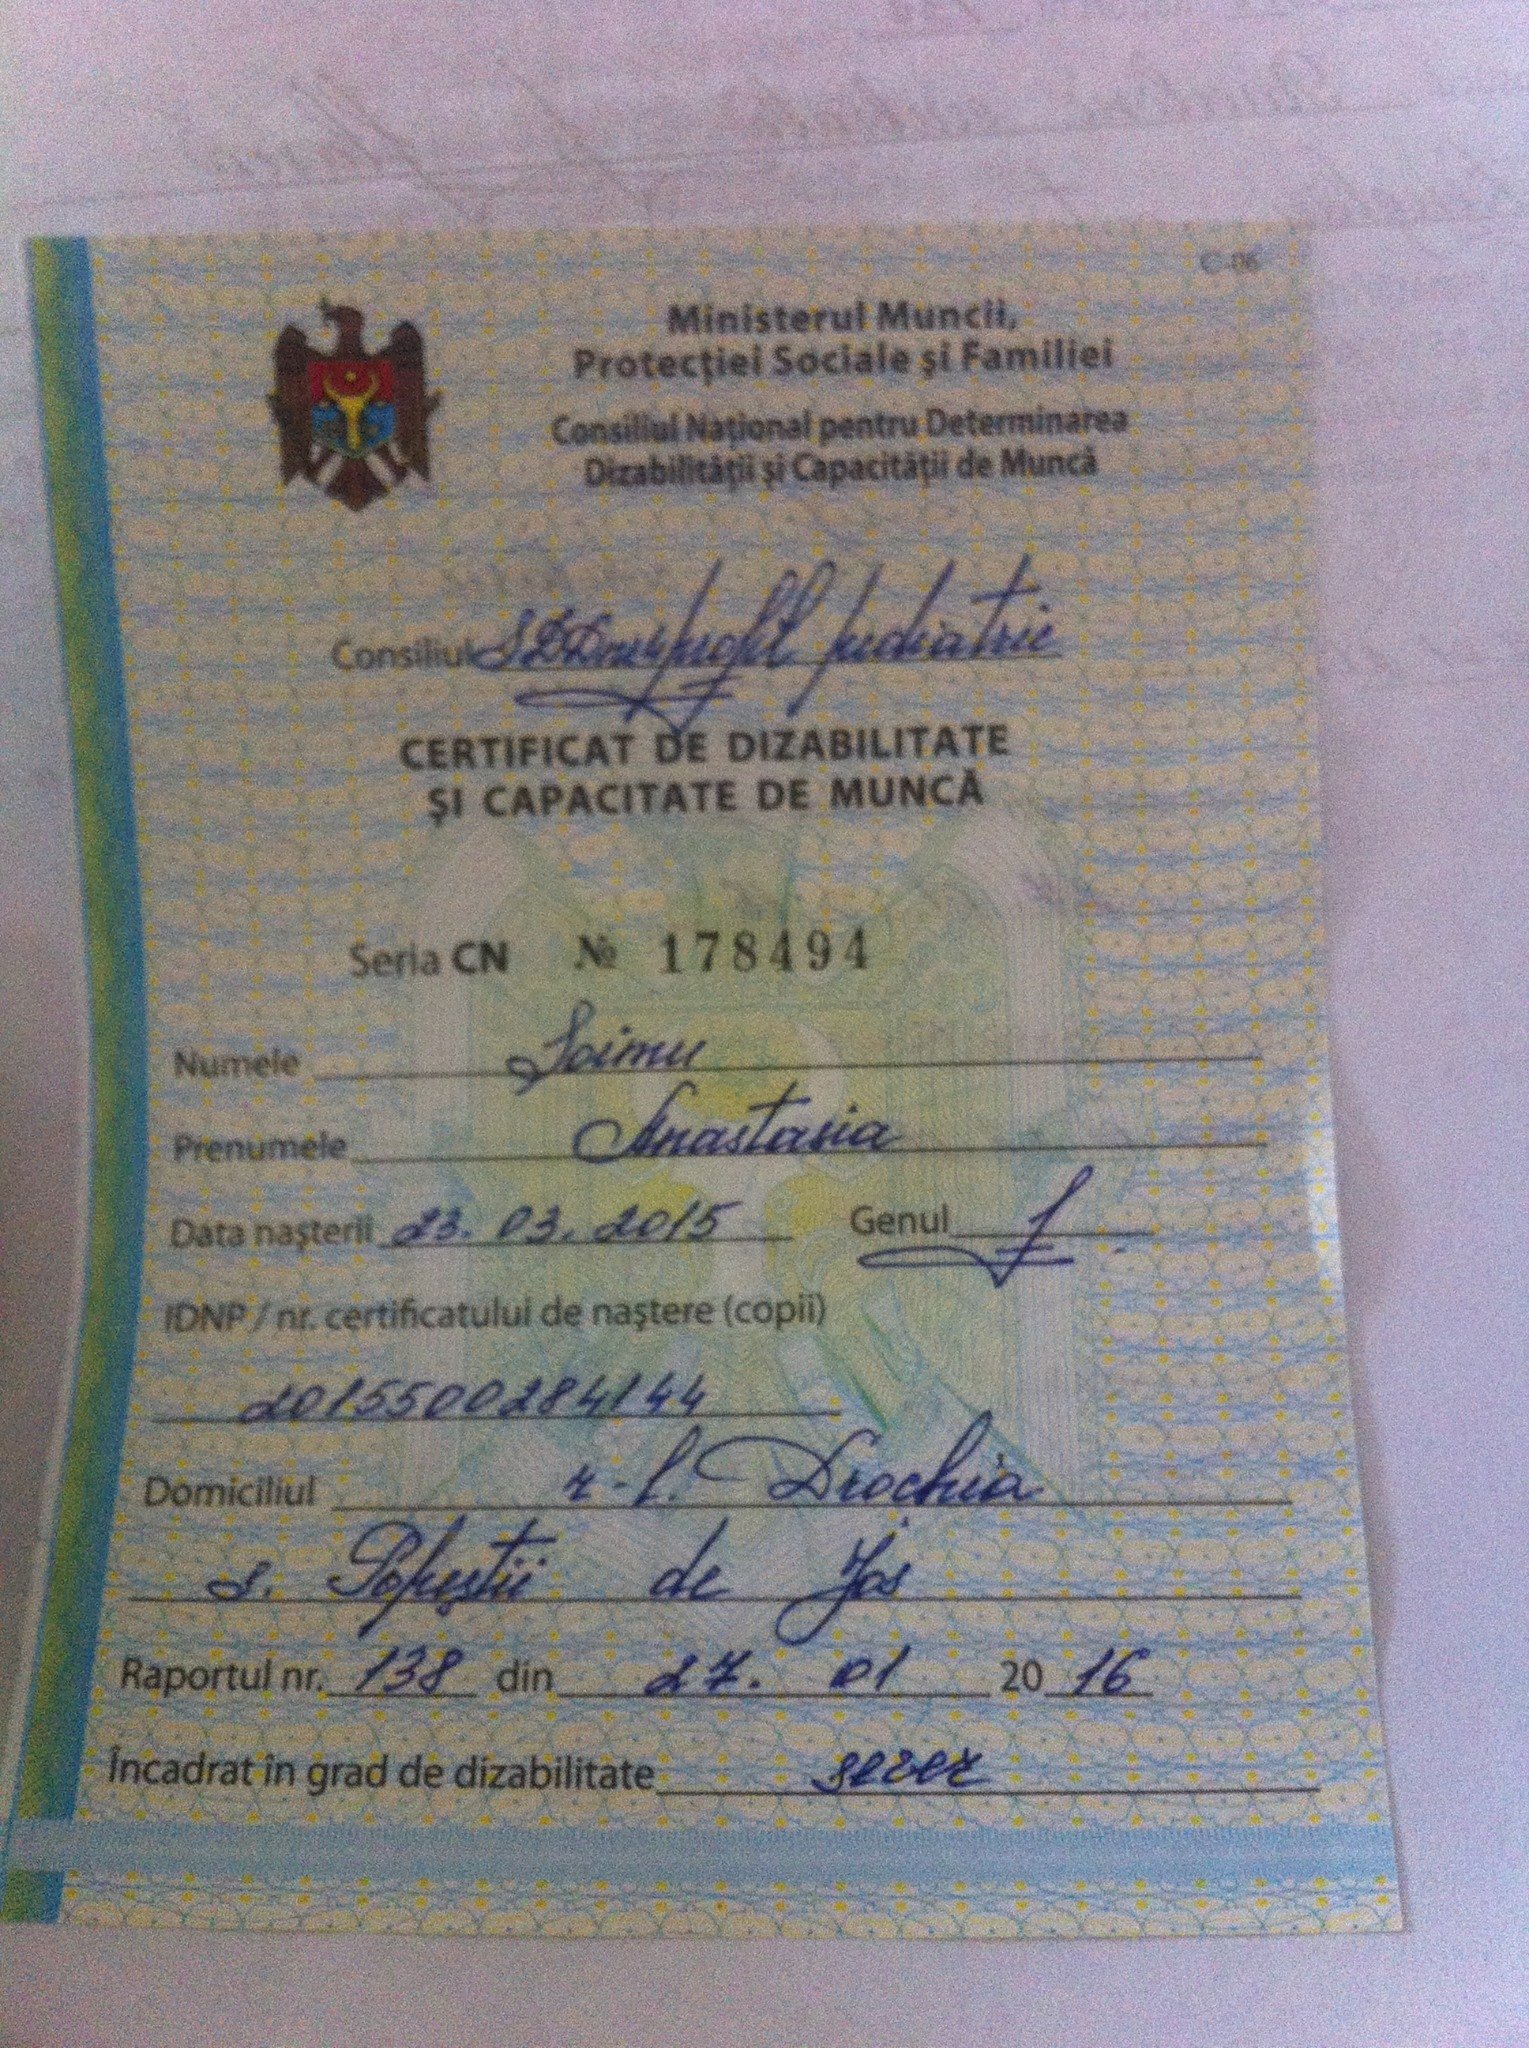 C-06
Ministerul Muncii,
Protecţiei Sociale şi Familiei
Consiliul Naţional pentru Determinarea
Dizabilităţii şi Capacităţii de Muncă
Consiliul pediatric
CERTIFICAT DE DIZABILITATE
ŞI CAPACITATE DE MUNCĂ
Seria CN № 178494
Numele Soimu
Prenumele Anastasia
Data naşterii 23.03.2015 Genul f
IDNP / nr. certificatului de naştere (copii)
2015500284144
Domiciliul r-l. Drochia
s. Popeştii de Jos
Raportul nr. 138 din 27. 01 2016
Încadrat în grad de dizabilitate sever